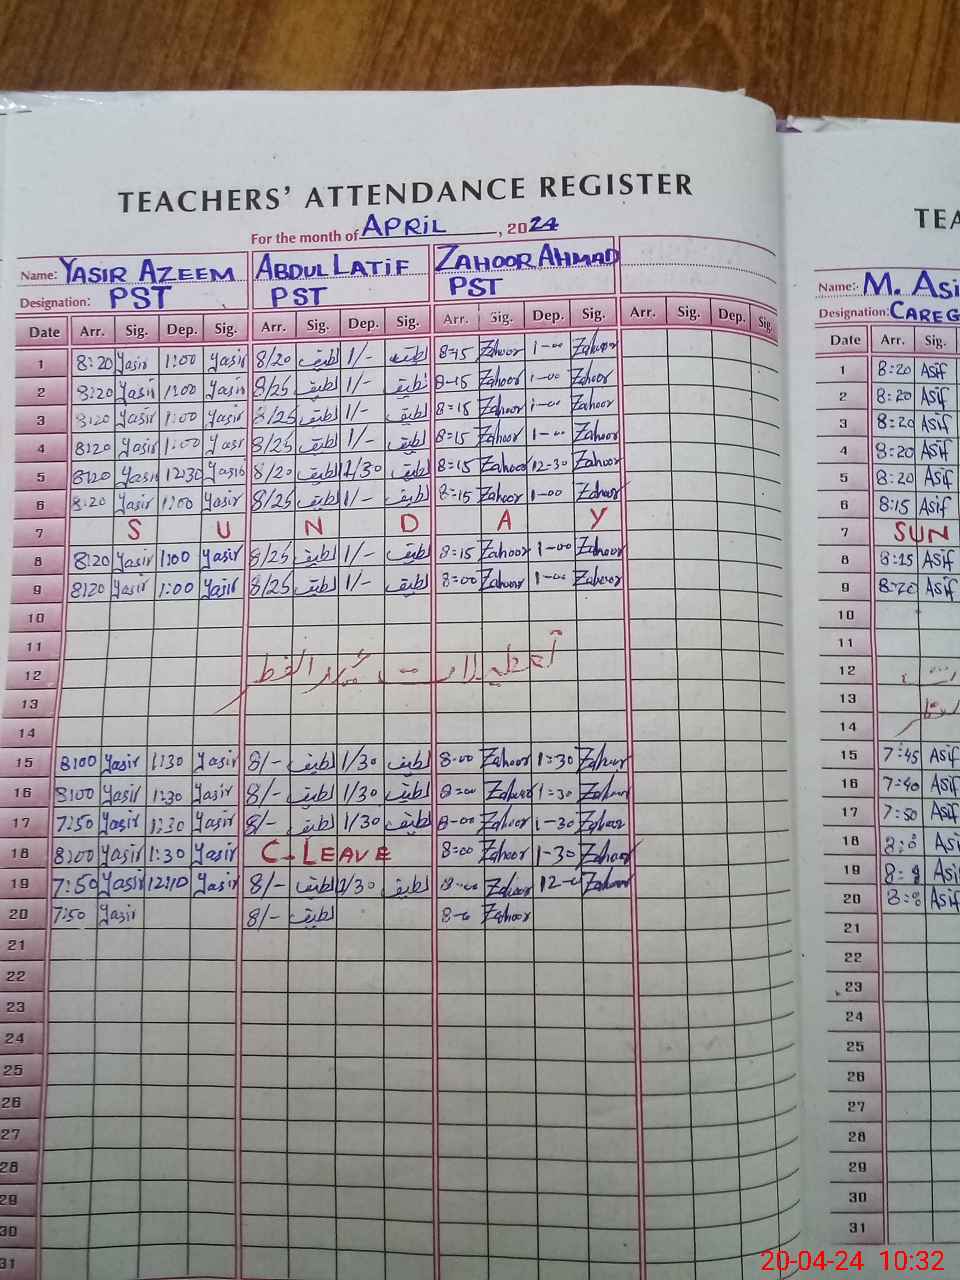 TEACHERS' ATTENDANCE REGISTER
For the month of APRIL, 2024
Name: YASIR AZEEM ABDUL LATIF ZAHOOR AHMAD
Designation: PST PST PST
Date Arr. Sig. Dep. Sig. Arr. Sig. Dep. Sig. Arr. Sig. Dep. Sig. Arr. Sig. Dep. Sig.
1 8:20 Yasir 1:00 Yasir 8/20 لطیف 1/- لطیف 8=15 Zahoor 1-00 Zahoor
2 8:20 Yasir 1:00 Yasir 8/25 لطیف 1/- لطیف 8-15 Zahoor 1-00 Zahoor
3 8:20 Yasir 1:00 Yasir 8/25 لطیف 1/- لطیف 8=15 Zahoor 1-00 Zahoor
4 8:20 Yasir 1:00 Yasir 8/25 لطیف 1/- لطیف 8=15 Zahoor 1-00 Zahoor
5 8:20 Yasir 12:30 Yasir 8/20 لطیف 12/30 لطیف 8=15 Zahoor 12-30 Zahoor
6 8:20 Yasir 1:00 Yasir 8/25 لطیف 1/- لطیف 8=15 Zahoor 1-00 Zahoor
7 S U N D A Y
8 8:20 Yasir 1:00 Yasir 8/25 لطیف 1/- لطیف 8=15 Zahoor 1-00 Zahoor
9 8:20 Yasir 1:00 Yasir 8/25 لطیف 1/- لطیف 8=00 Zahoor 1-00 Zahoor
10
11
12 تعطیلات عید الفطر
13
14
15 8:00 Yasir 1:30 Yasir 8/- لطیف 1/30 لطیف 8-00 Zahoor 1=30 Zahoor
16 8:00 Yasir 1:30 Yasir 8/- لطیف 1/30 لطیف 8=00 Zahoor 1=30 Zahoor
17 7:50 Yasir 1:30 Yasir 8/- لطیف 1/30 لطیف 8-00 Zahoor 1-30 Zahoor
18 8:00 Yasir 1:30 Yasir C-LEAVE 8=00 Zahoor 1-30 Zahoor
19 7:50 Yasir 12:10 Yasir 8/- لطیف لطیف 8-00 Zahoor Zahoor
20 7:50 Yasir 8/- لطیف Zahoor
21
22
23
24
25
26
27
28
29
30
31
TEA
Name: M. Asi
Designation: CAREG
Date Arr. Sig.
1 8:20 Asif
2 8:20 Asif
3 8:20 Asif
4 8:20 Asif
5 8:20 Asif
6 8:15 Asif
7 SUN
8 8:15 Asif
9 8:20 Asif
10
11
12
13
14
15 7:45 Asif
16 7:40 Asif
17 7:50 Asif
18 Asif
19 Asif
20 Asif
21
22
23
24
25
26
27
28
29
30
31
20-04-24 10:32